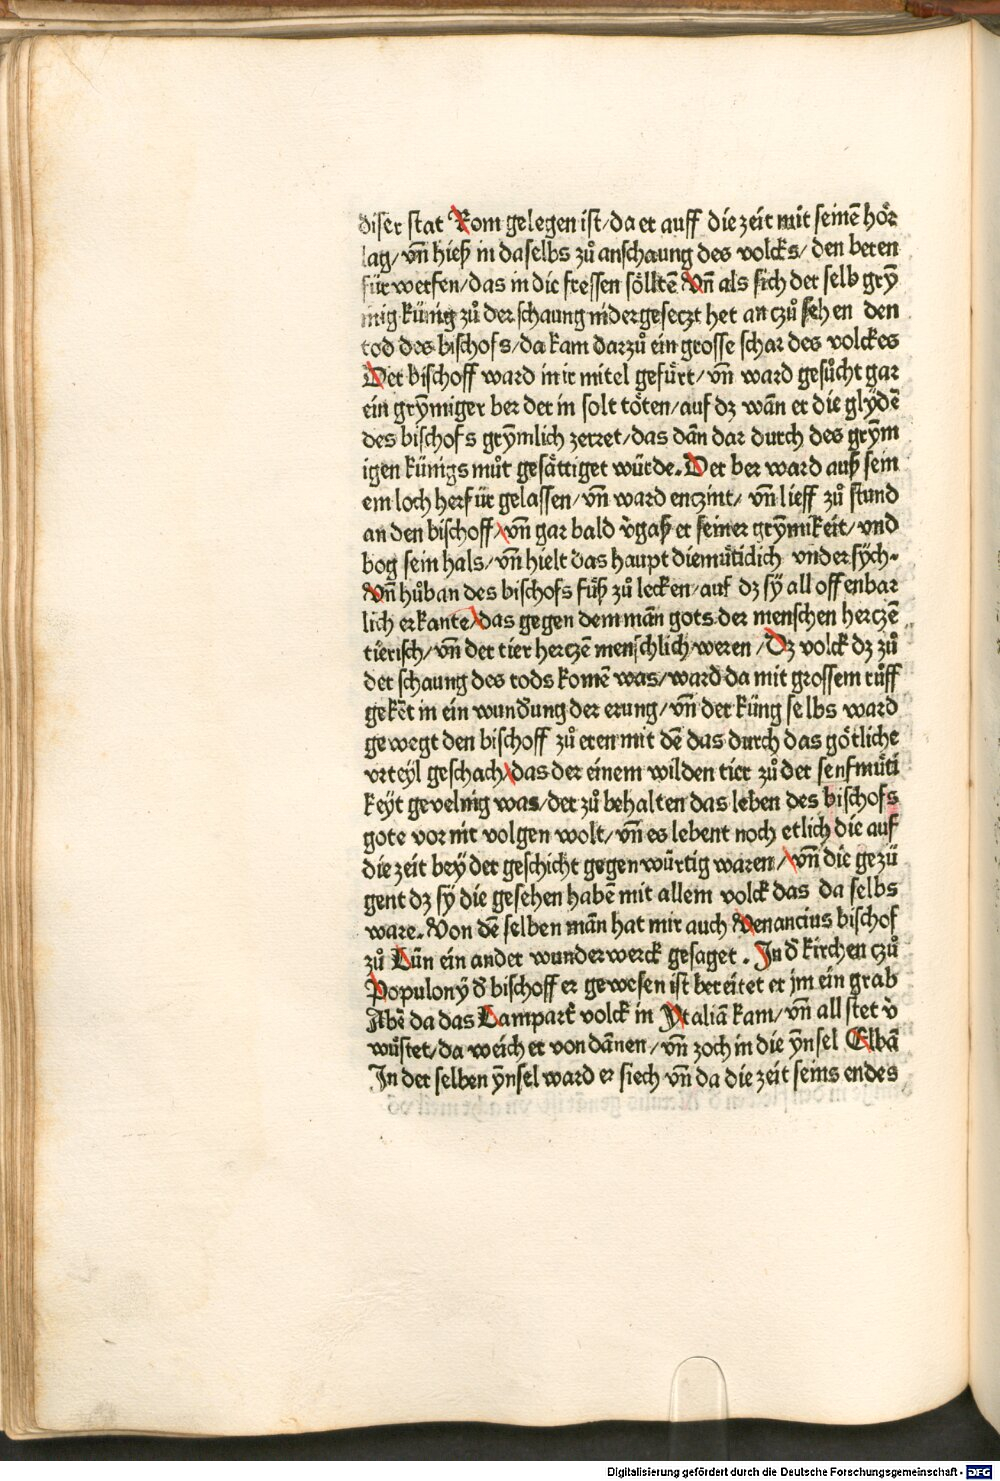 diser stat Rom gelegen ist/da er auff die zeit mit seinē hoͤr
lag/vn̄ hieß in daselbs zuͦ anschaung des volcks/den beren
fürwerfen/das in die fressen soͤlltē Vn̄ als sich der selb grȳ
mig künig zuͦ der schaung nidergeseczt het an czuͦ sehen den
tod des bischofs/da kam darzuͦ ein grosse schar des volckes
Der bischoff ward in ir mitel gefuͤrt/vn̄ ward gesuͦcht gar
ein grȳmiger ber der in solt toͤten/auf dz wān er die glydē
des bischofs grȳmlich zerret/das dān dar durch des grȳm
igen künigs muͦt gesaͤttiget würde. Der ber ward auß sein
em loch herfür gelassen/vn̄ ward enczint/ vn̄ lieff zuͦ stund
an den bischoff/vn̄ gar bald v̓gaß er seiner grȳmikeit/vnd
bog sein hals/vn̄ hielt das haupt diemuͤtidich vnder sych.
Vn̄ huͦb an des bischofs fuͤß zuͦ lecken/auf dz sy all offenbar
lich erkante/das gegen dem mān gots der menschen herczē
tierisch/vn̄ der tier herczē menschlich weren/Dz volck dz zuͦ
der schaung des tods komē was/ward da mit grossem ruͦff
gekēt in ein wundung der erung/vn̄ der küng selbs ward
gewegt den bischoff zuͦ eren mit dē das durch das goͤtliche
vrteyl geschach/das der einem wilden tier zuͦ der senfmuͤti
keyt gevelnig was/der zuͦ behalten das leben des bischofs
gote vor nit volgen wolt/vn̄ es lebent noch etlich die auf
die zeit bey der geschicht gegenwürtig waren/vn̄ die gezü
gent dz sy die gesehen habē mit allem volck das da selbs
ware. Von dē selben mān hat mir auch Venancius bischof
zuͦ Lün ein ander wunderwerck gesaget. In d̓ kirchen czuͦ
Populony d̓ bischoff er gewesen ist bereitet er jm ein grab
Abē da das Lampart̓ volck in Ytaliā kam/vn̄ all stet v̓
wuͤstet/da weich er von dānen/vn̄ zoch in die ynsel Elbā
In der selben ynsel ward er siech vn̄ da die zeit seins endes
Digitalisierung gefördert durch die Deutsche Forschungsgemeinschaft - DFG